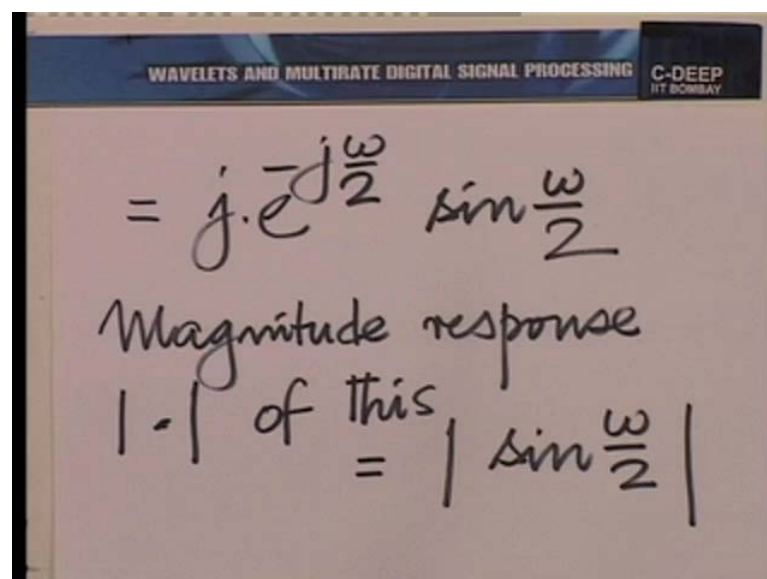 WAVELETS AND MULTIRATE DIGITAL SIGNAL PROCESSING
C-DEEP
IIT BOMBAY
= j.e^{-jω/2} sin ω/2
Magnitude response
|·| of this
= | sin ω/2 |